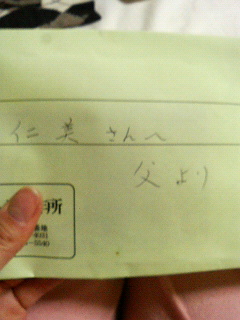 仁美さんへ
父より
所